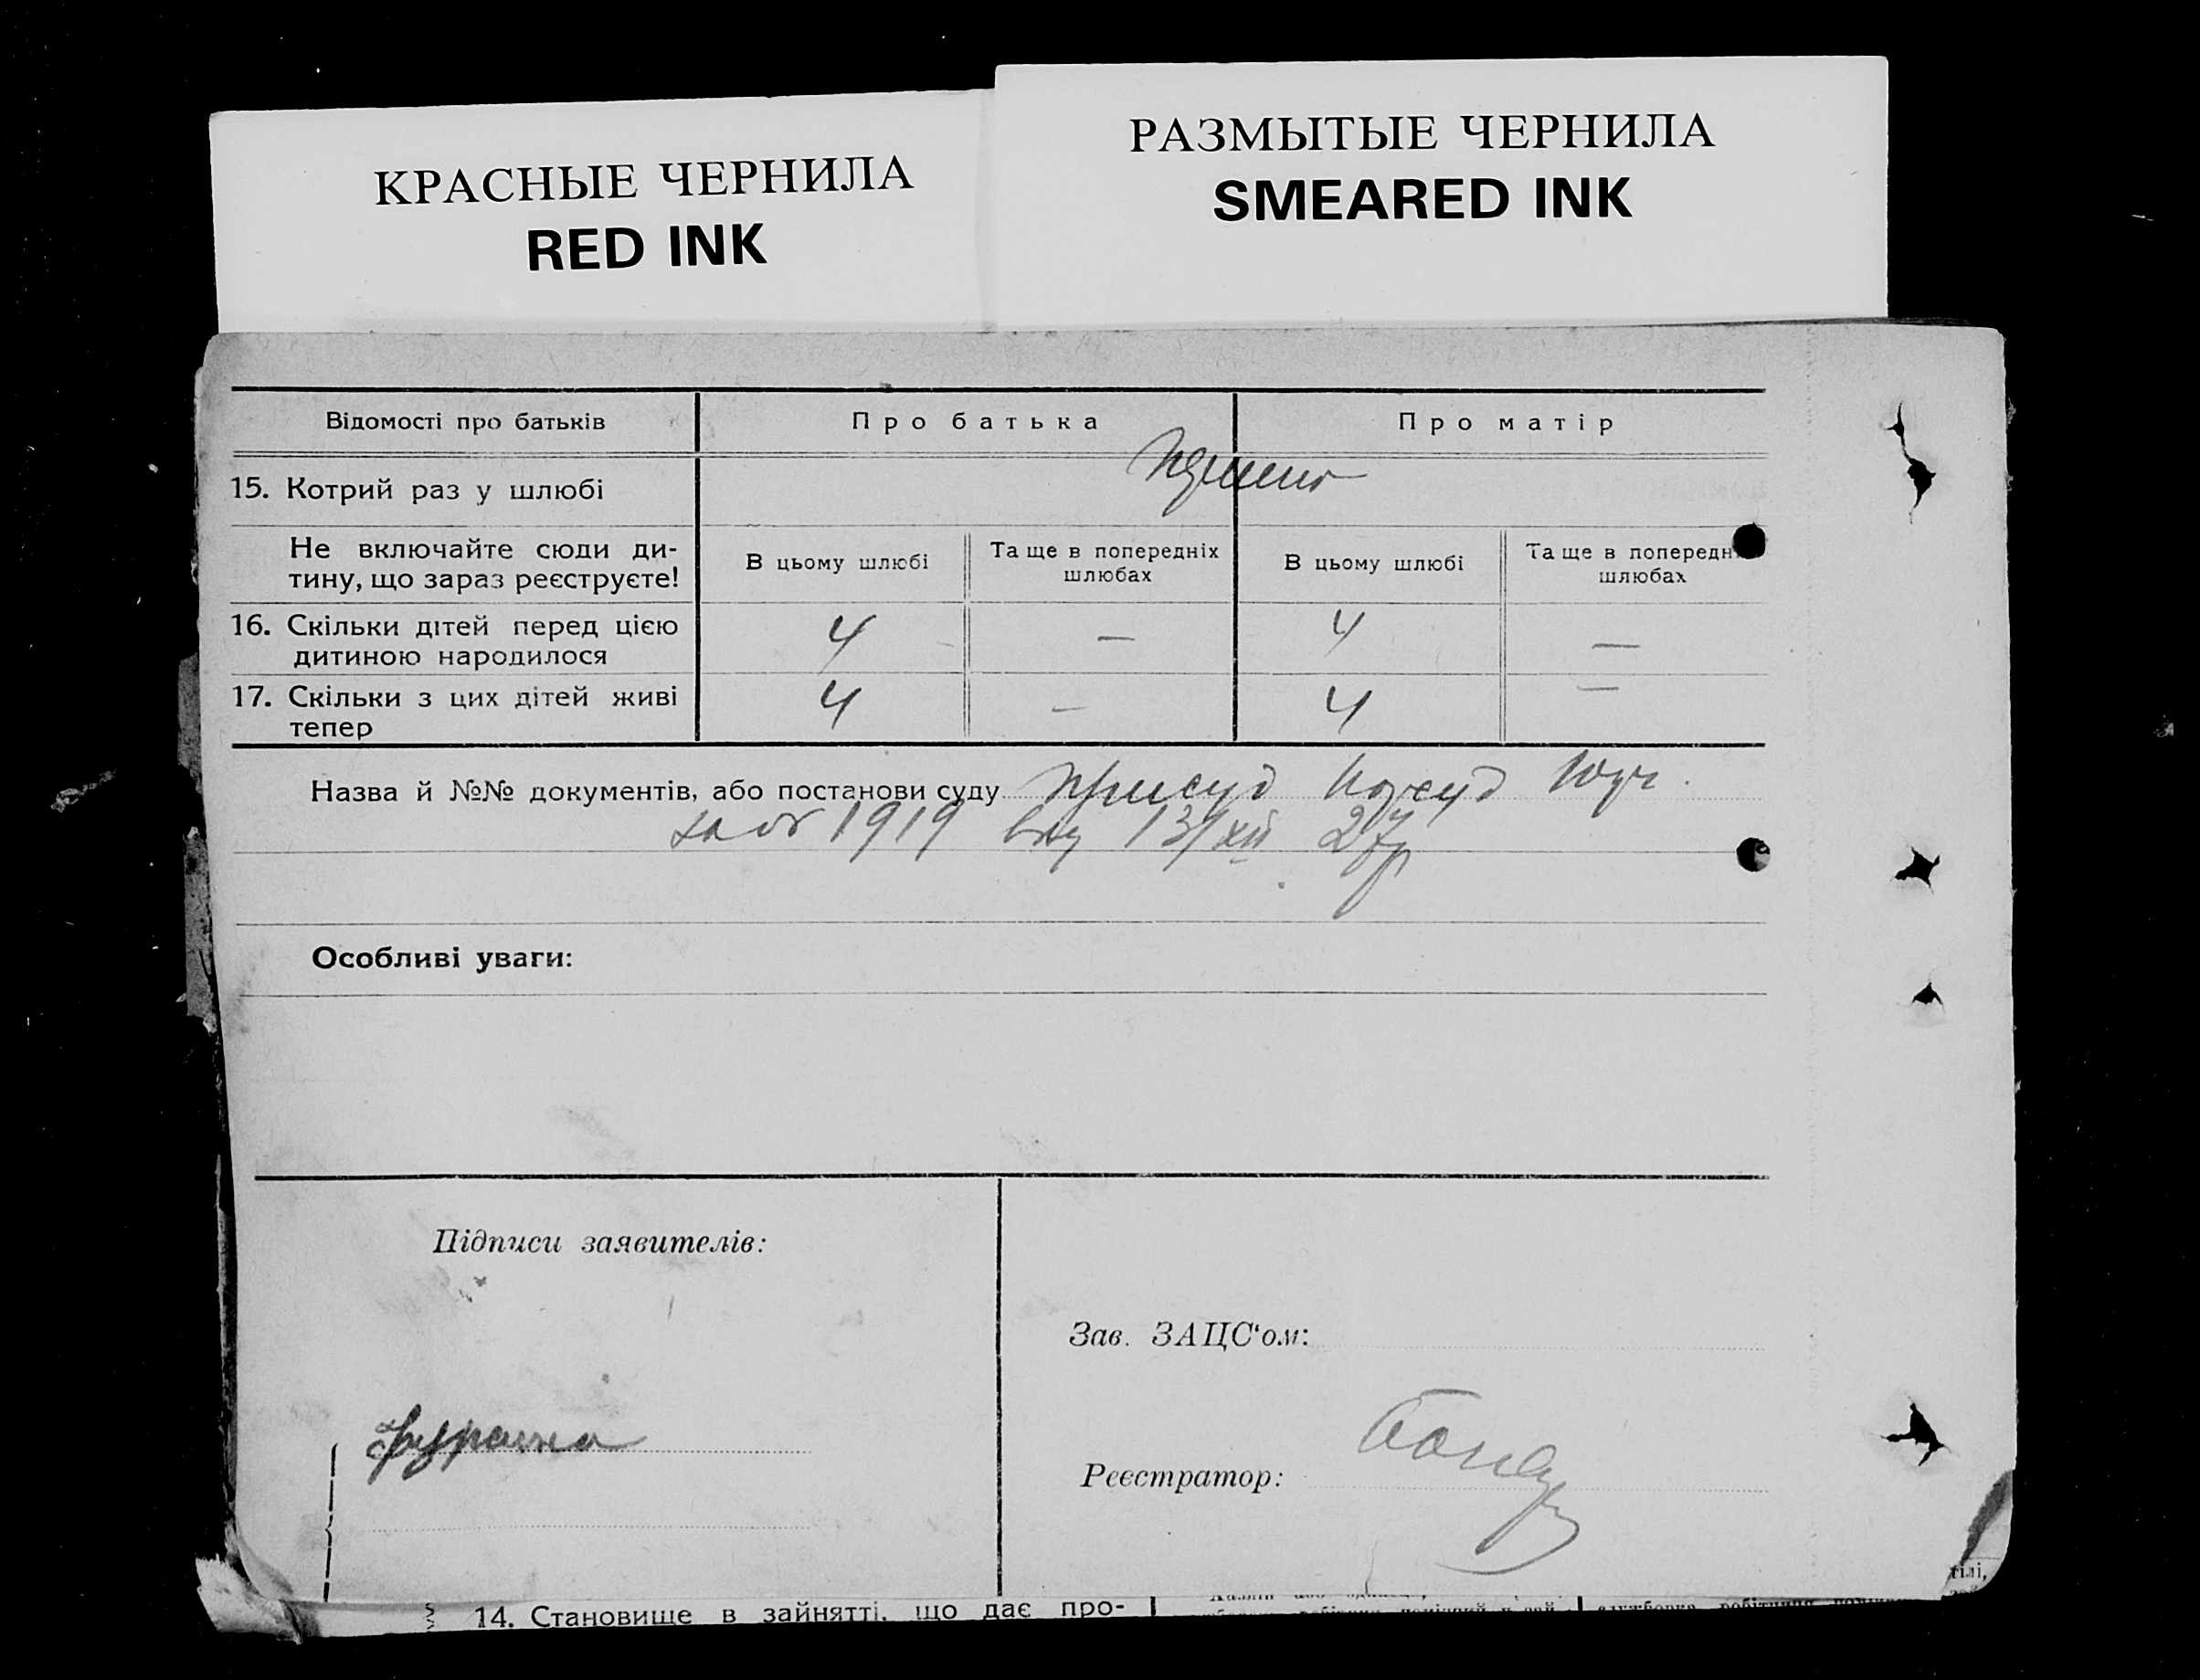 КРАСНЫЕ ЧЕРНИЛА
RED INK
РАЗМЫТЫЕ ЧЕРНИЛА
SMEARED INK
Відомості про батьків
Про батька
Про матір
15. Котрий раз у шлюбі
Не включайте сюди ди-
тину, що зараз реєструєте!
В цьому шлюбі
Та ще в попередніх
шлюбах
В цьому шлюбі
Та ще в попередн
шлюбах
16. Скільки дітей перед цією
дитиною народилося
4 — 4 —
17. Скільки з цих дітей живі
тепер
4 — 4 —
Назва й №№ документів, або постанови суду присуд
1919 від 13/XII 27р
Особливі уваги:
Підписи заявителів:
Зав. ЗАЦС'ом:
Реєстратор:
14. Становище в зайнятті, що дає про-